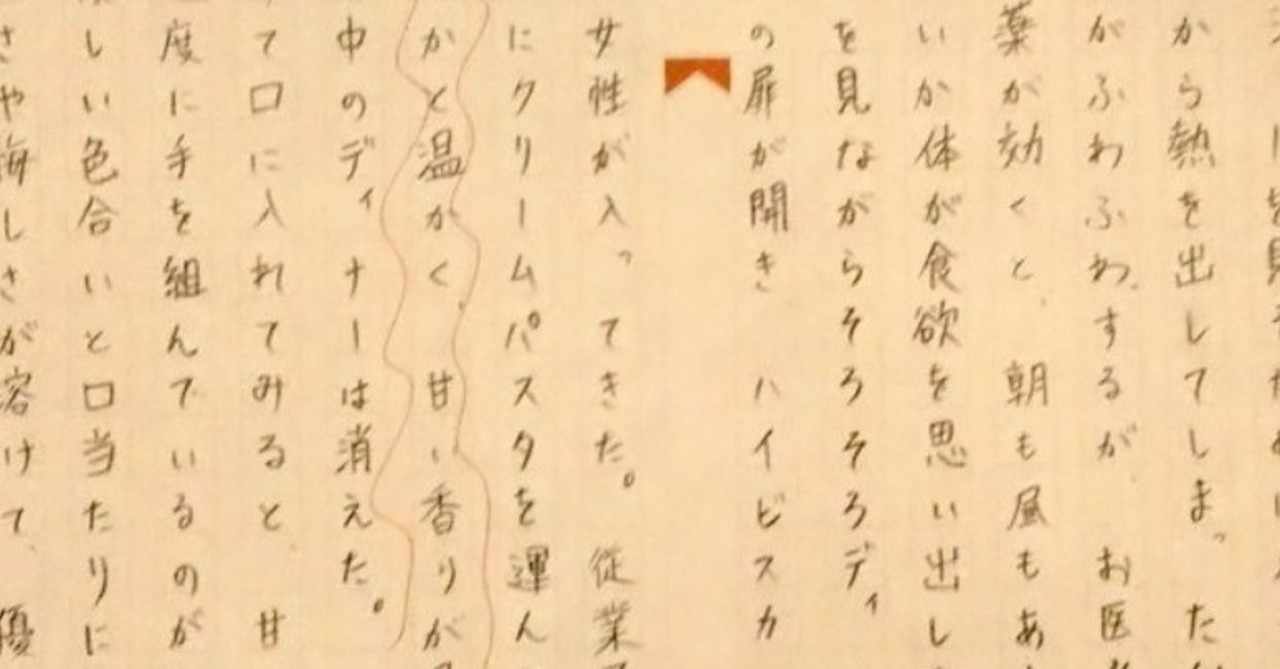 から熱を出してしまった
がふわふわするが、お医
薬が効くと、朝も風もあ
いか体が食欲を思い出し
を見ながらそろそろディ
の扉が開き ハイビスカ
女性が入ってきた。従業
にクリームパスタを運ん
かと温かく、甘い香りが
中のディナーは消えた。
て口に入れてみると、甘
度に手を組んでいるのが
しい色合いと口当たりに
さや悔しさが溶けて、優